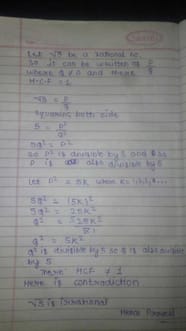 Let √5 be a rational no.
So it can be written as P/q
where q ≠ 0 and there
H.C.F = 1
√5 = P/q
Squaring both side
5 = P²/q²
5q² = P²
so P² is divisible by 5 and so
P is also divisible by 5
Let P = 5K where K=1,2,3...
5q² = (5K)²
5q² = 25K²
q² = 25K²/5
q² = 5K²
q² is divisible by 5 so q is also divisible
by 5.
There HCF ≠ 1
Here is contradiction
√5 is irrational
Hence Proved